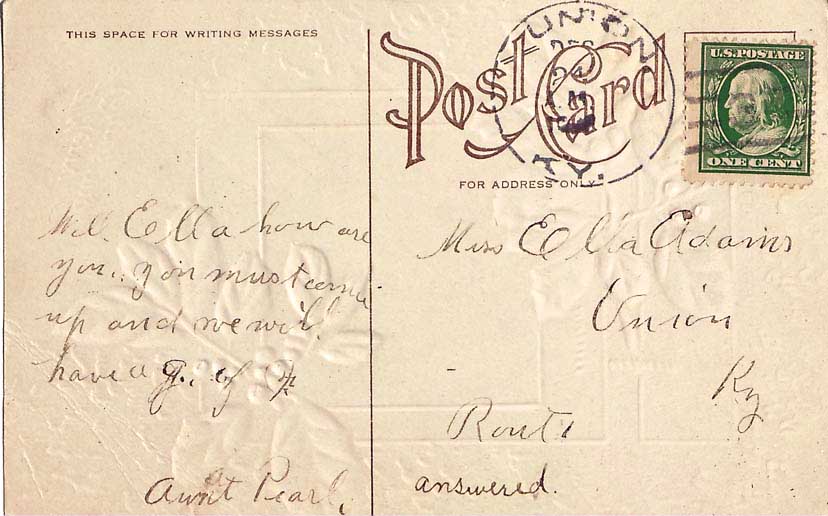 THIS SPACE FOR WRITING MESSAGES
Post Card
FOR ADDRESS ONLY.
UNION
DEC
24
KY.
U.S. POSTAGE
ONE CENT
Well Ella how are
you. you must come
up and we will
have a g. of
Aunt Pearl.
Miss Ella Adams
Union
Ky
Route 1
answered.